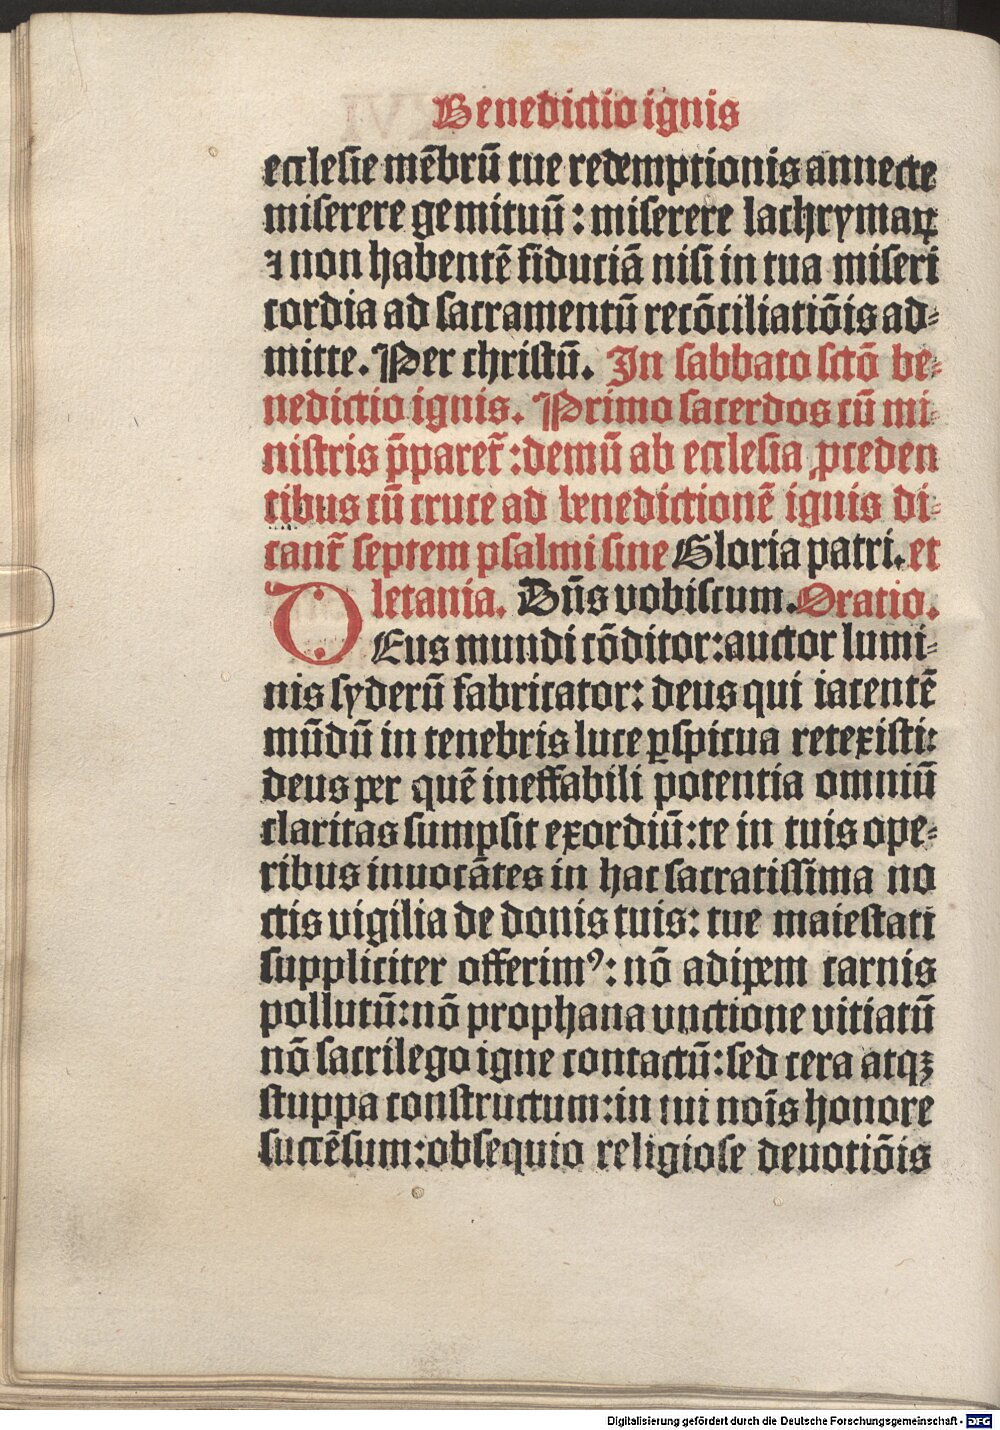 Benedictio ignis
ecclesie mēbrū tue redemptionis annecte
miserere gemituū : miserere lachrymaꝝ
⁊ non habentē fiduciā nisi in tua miseri
cordia ad sacramentū recōciliatiōis ad⸗
mitte. Per christū. In sabbato sctō be⸗
nedictio ignis. Primo sacerdos cū mi⸗
nistris p̄paret᷑ : demū ab ecclesia ꝓceden
tibus cū cruce ad benedictionē ignis di⸗
cant᷑ septem psalmi sine Gloria patri. et
letania. Dn̄s vobiscum. Oratio.
DEus mundi cōditor: auctor lumi⸗
nis syderū fabricator: deus qui iacentē
mūdū in tenebris luce ꝑspicua retexisti:
deus per quē ineffabili potentia omniū
claritas sumpsit exordiū: te in tuis ope⸗
ribus inuocātes in hac sacratissima no
ctis vigilia de donis tuis: tue maiestati
suppliciter offerimꝰ: nō adipem carnis
pollutū: nō prophana vnctione vitiatū
nō sacrilego igne contactū: sed cera atqꝫ
stuppa constructum: in tui noīs honore
succēsum: obsequio religiose deuotiōis
Digitalisierung gefördert durch die Deutsche Forschungsgemeinschaft - DFG